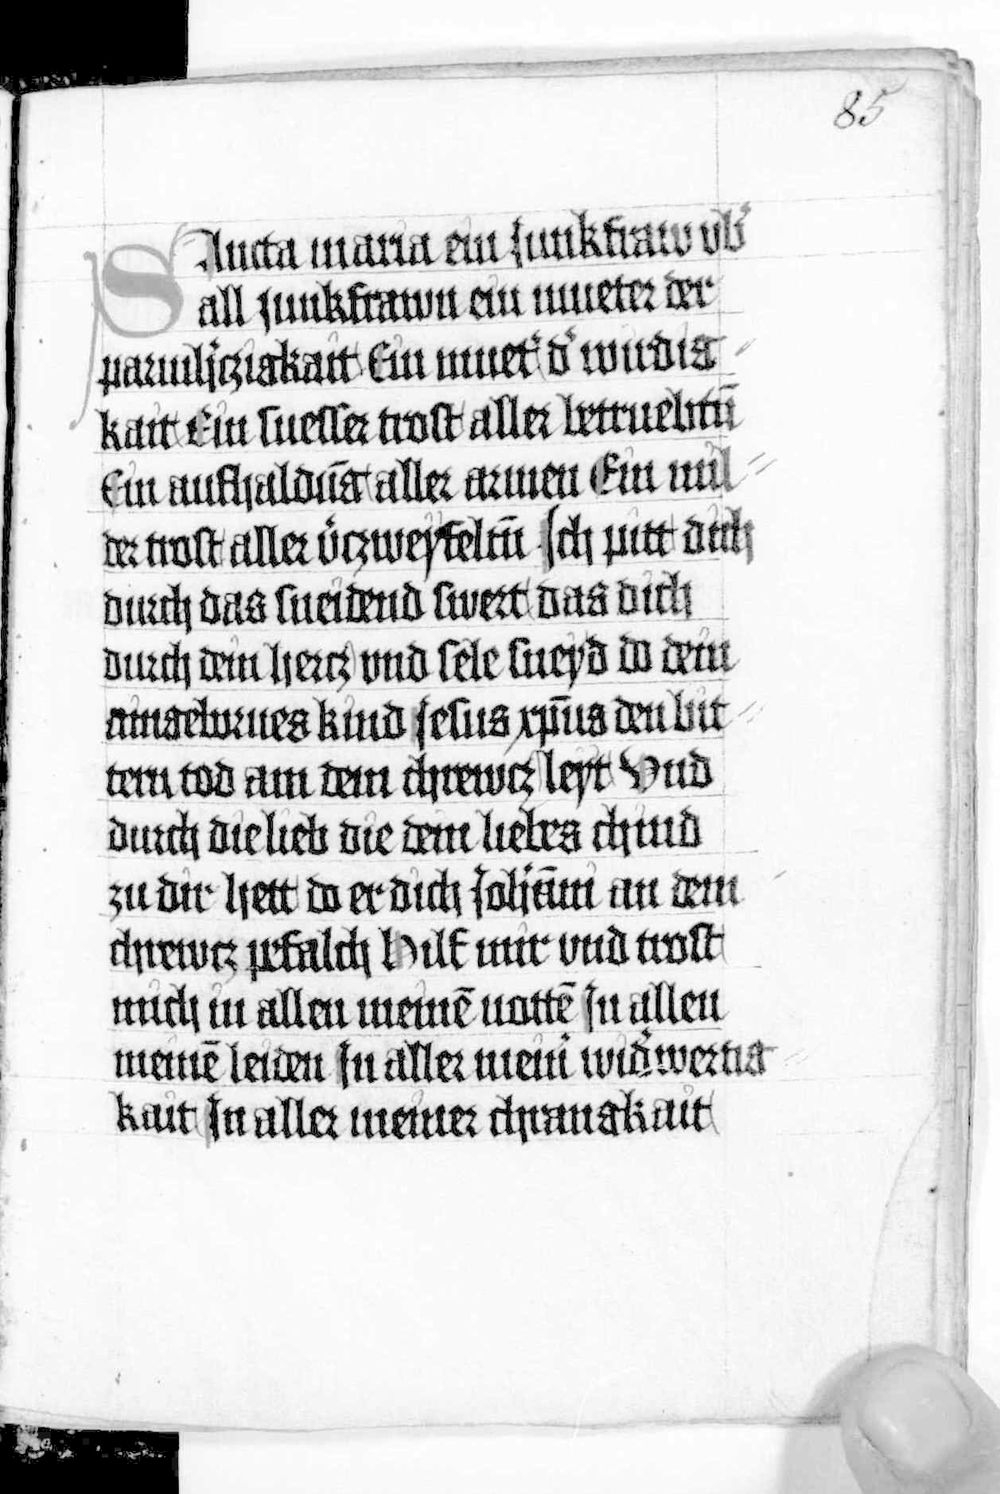 85
SAncta maria ein junkfraw vb̾
all junkfrawn ein mueter der
parmh̾cziakait Ein muet̾ d̾ wirdig
kait Ein suesser trost aller betruebtn̄
Ein aufhaldūg aller armen Ein mil
der trost aller v̾czweyfeltn̄ Ich pitt dich
durch das sneidend swert das dich
durch dein hercz vnd sele sneyd do dein
aingebornes kind jesus xp̄us den bit
tern tod am dem chrewcz leyt Vnd
durch die lieb die dein liebes chind
zu dir hett do er dich joh̄ani an dem
chrewcz pefalch Hilf mir vnd trost
mich in allen meinē nottē In allen
meinē leiden In aller mein̾ wid̾wertig
kait In aller meiner chrangkait